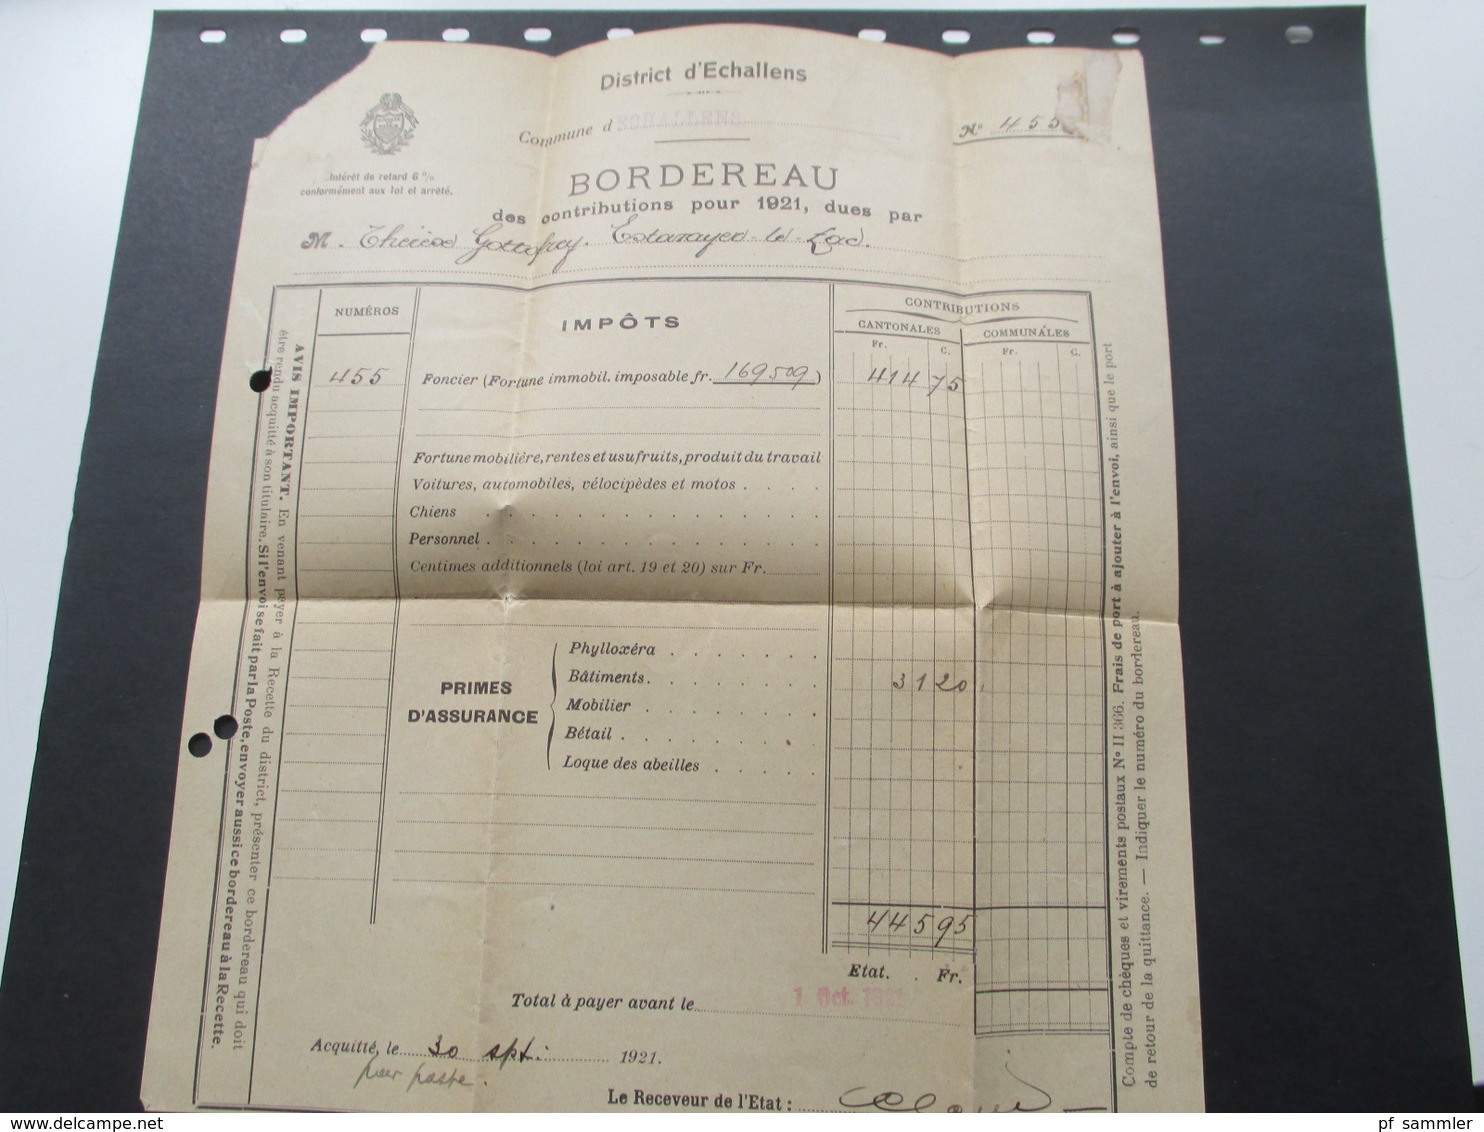 District d'Echallens
Commune d ECHALLENS
No 455
Intérêt de retard 6 %
conformément aux loi et arrêté.
BORDEREAU
des contributions pour 1921, dues par
M. Thérèse Gottofrey. Estavayer-le-Lac.
NUMÉROS
IMPÔTS
CONTRIBUTIONS
CANTONALES
COMMUNALES
Fr. C. Fr. C.
455 Foncier (Fortune immobil. imposable fr. 169509) 414 75
Fortune mobilière, rentes et usufruits, produit du travail
Voitures, automobiles, vélocipèdes et motos
Chiens
Personnel
Centimes additionnels (loi art. 19 et 20) sur Fr.
PRIMES
D'ASSURANCE
Phylloxéra
Bâtiments. 31 20
Mobilier
Bétail
Loque des abeilles
445 95
Etat. Fr.
Total à payer avant le 1 Oct. 1921
Acquitté, le 30 spt. 1921.
par poste.
Le Receveur de l'Etat:
AVIS IMPORTANT. En venant payer à la Recette du district, présenter ce bordereau qui doit
être rendu acquitté à son titulaire. Si l'envoi se fait par la Poste, envoyer aussi ce bordereau à la Recette.
Compte de chèques et virements postaux No II 366. Frais de port à ajouter à l'envoi, ainsi que le port
de retour de la quittance. — Indiquer le numéro du bordereau.
pf_sammler